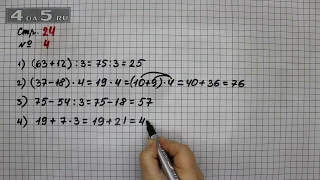 4DA5.RU
Стр. 24
№ 4
1) (63+12) : 3 = 75 : 3 = 25
2) (37-18) · 4 = 19 · 4 = (10+9) · 4 = 40 + 36 = 76
3) 75 - 54 : 3 = 75 - 18 = 57
4) 19 + 7 · 3 = 19 + 21 = 4